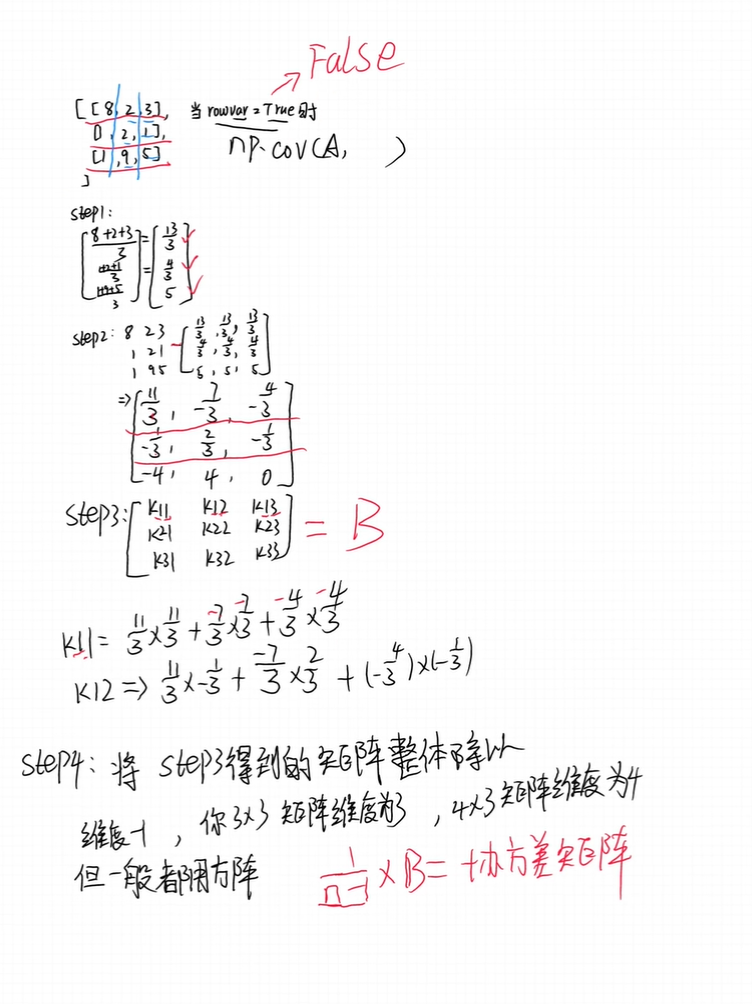 False
[[8,2,3], 当rowvar=True时
[1,2,1], np.cov(A, )
[1,9,5]
]
step1:
[8+2+3/3] = [13/3]
[1+2+1/3] = [4/3]
[1+9+5/3] [5]
step2: 8 2 3 - [13/3, 13/3, 13/3]
1 2 1 [4/3, 4/3, 4/3]
1 9 5 [5, 5, 5]
=> [11/3, -7/3, -4/3]
[-1/3, 2/3, -1/3]
[-4, 4, 0]
step3: [K11 K12 K13]
[K21 K22 K23] = B
[K31 K32 K33]
K11= 11/3×11/3 + -7/3×-7/3 + -4/3×-4/3
K12=> 11/3×-1/3 + -7/3×2/3 + (-4/3)×(-1/3)
step4: 将step3得到的矩阵整体除以
维度-1, 你3×3矩阵维度为3, 4×3矩阵维度为4
但一般都用方阵 1/n-1 × B = 协方差矩阵